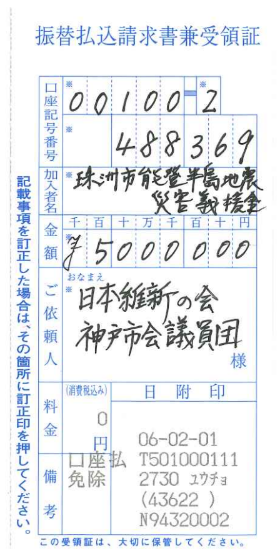 振替払込請求書兼受領証
口座記号番号
※ 00100-※2
※ 488369
加入者名
※ 珠洲市能登半島地震
災害義援金
金額
千 百 十 万 千 百 十 円
※ ¥5000000
ご依頼人
おなまえ
※ 日本維新の会
神戸市会議員団
様
料金
(消費税込み)
0
円
日附印
06-02-01
備考
口座払
免除
T501000111
2730 ユウチョ
(43622 )
N94320002
記載事項を訂正した場合は、その箇所に訂正印を押してください。
この受領証は、大切に保管してください。